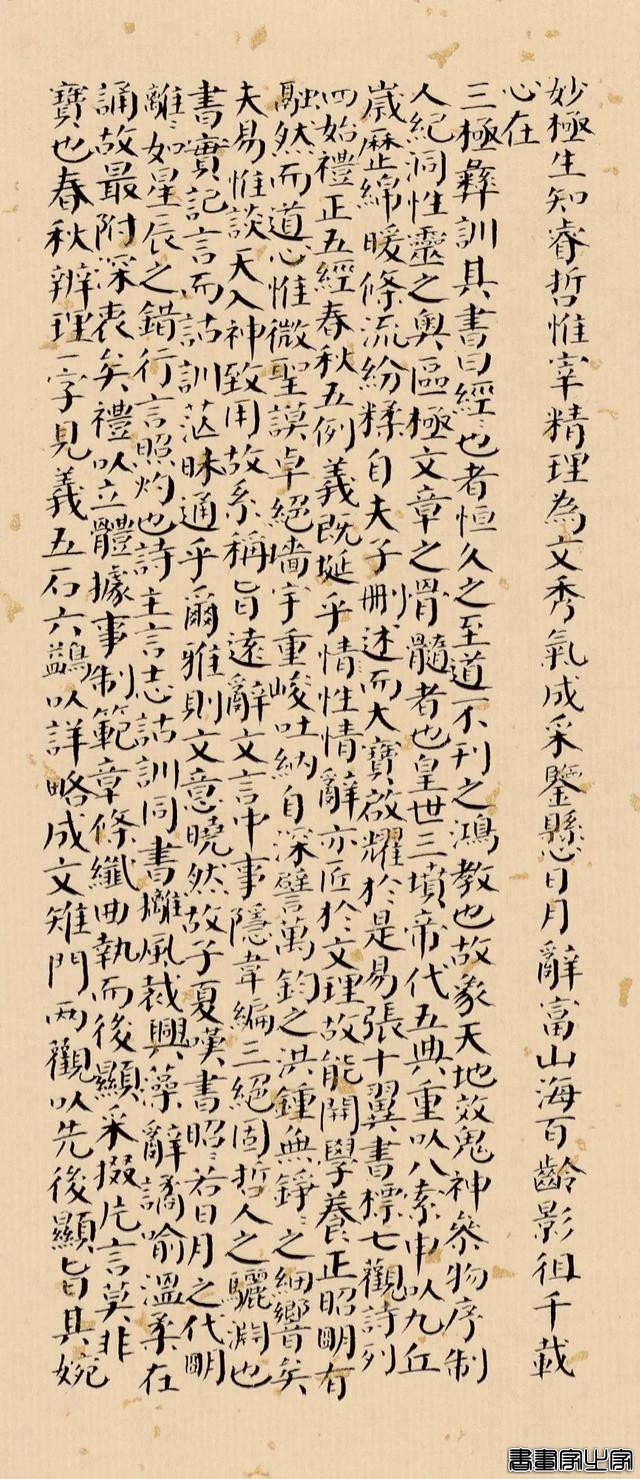 妙極生知睿哲惟宰精理為文秀氣成采鑒懸日月辭富山海百齡影徂千載
心在
三極彝訓其書曰經〻也者恒久之至道不刊之鴻教也故象天地效鬼神參物序制
人紀洞性靈之奧區極文章之骨髓者也皇世三墳帝代五典重以八索申以九丘
歲歷綿曖條流紛糅自夫子刪述而大寶啟耀於是易張十翼書標七觀詩列
四始禮正五經春秋五例義既埏乎情性情辭亦匠於文理故能開學養正昭明有
融然而道心惟微聖謨卓絕墻宇重峻吐納自深譬萬鈞之洪鍾無錚〻之細響矣
夫易惟談天入神致用故系稱旨遠辭文言中事隱韋編三絕固哲人之驪淵也
書實記言而詁訓茫昧通乎爾雅則文意曉然故子夏嘆書昭〻若日月之代明
離〻如星辰之錯行言照灼也詩主言志詁訓同書摛風裁興藻辭譎喻溫柔在
誦故最附深衷矣禮以立體據事制範章條纖曲執而後顯采掇片言莫非
寶也春秋辨理一字見義五石六鷁以詳略成文雉門兩觀以先後顯旨其婉
書畫家之家